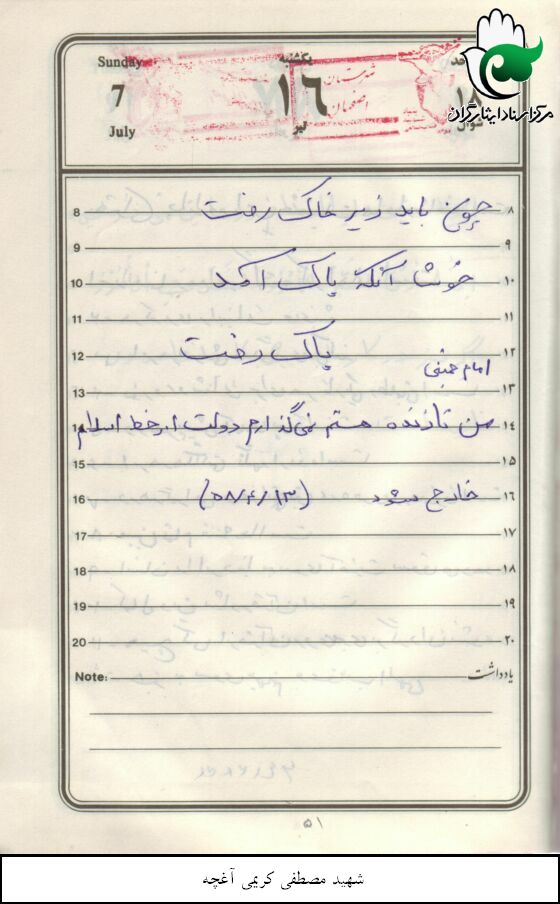 مرکز اسناد ایثارگران
Sunday یکشنبه احد
7 ۱۶ ۱۸
July تیر شوال
8 چون باید زیر خاک رفت ۸
9 ۹
10 خوشا آنکه پاک آمد ۱۰
11 ۱۱
12 پاک رفت ۱۲
امام خمینی
13 ۱۳
14 من تا زنده هستم نمی‌گذارم دولت از خط اسلام ۱۴
15 ۱۵
16 خارج شود (۵۸/۴/۱۳) ۱۶
17 ۱۷
18 ۱۸
19 ۱۹
20 ۲۰
Note: یادداشت
۵۱
شهید مصطفی کریمی آغچه